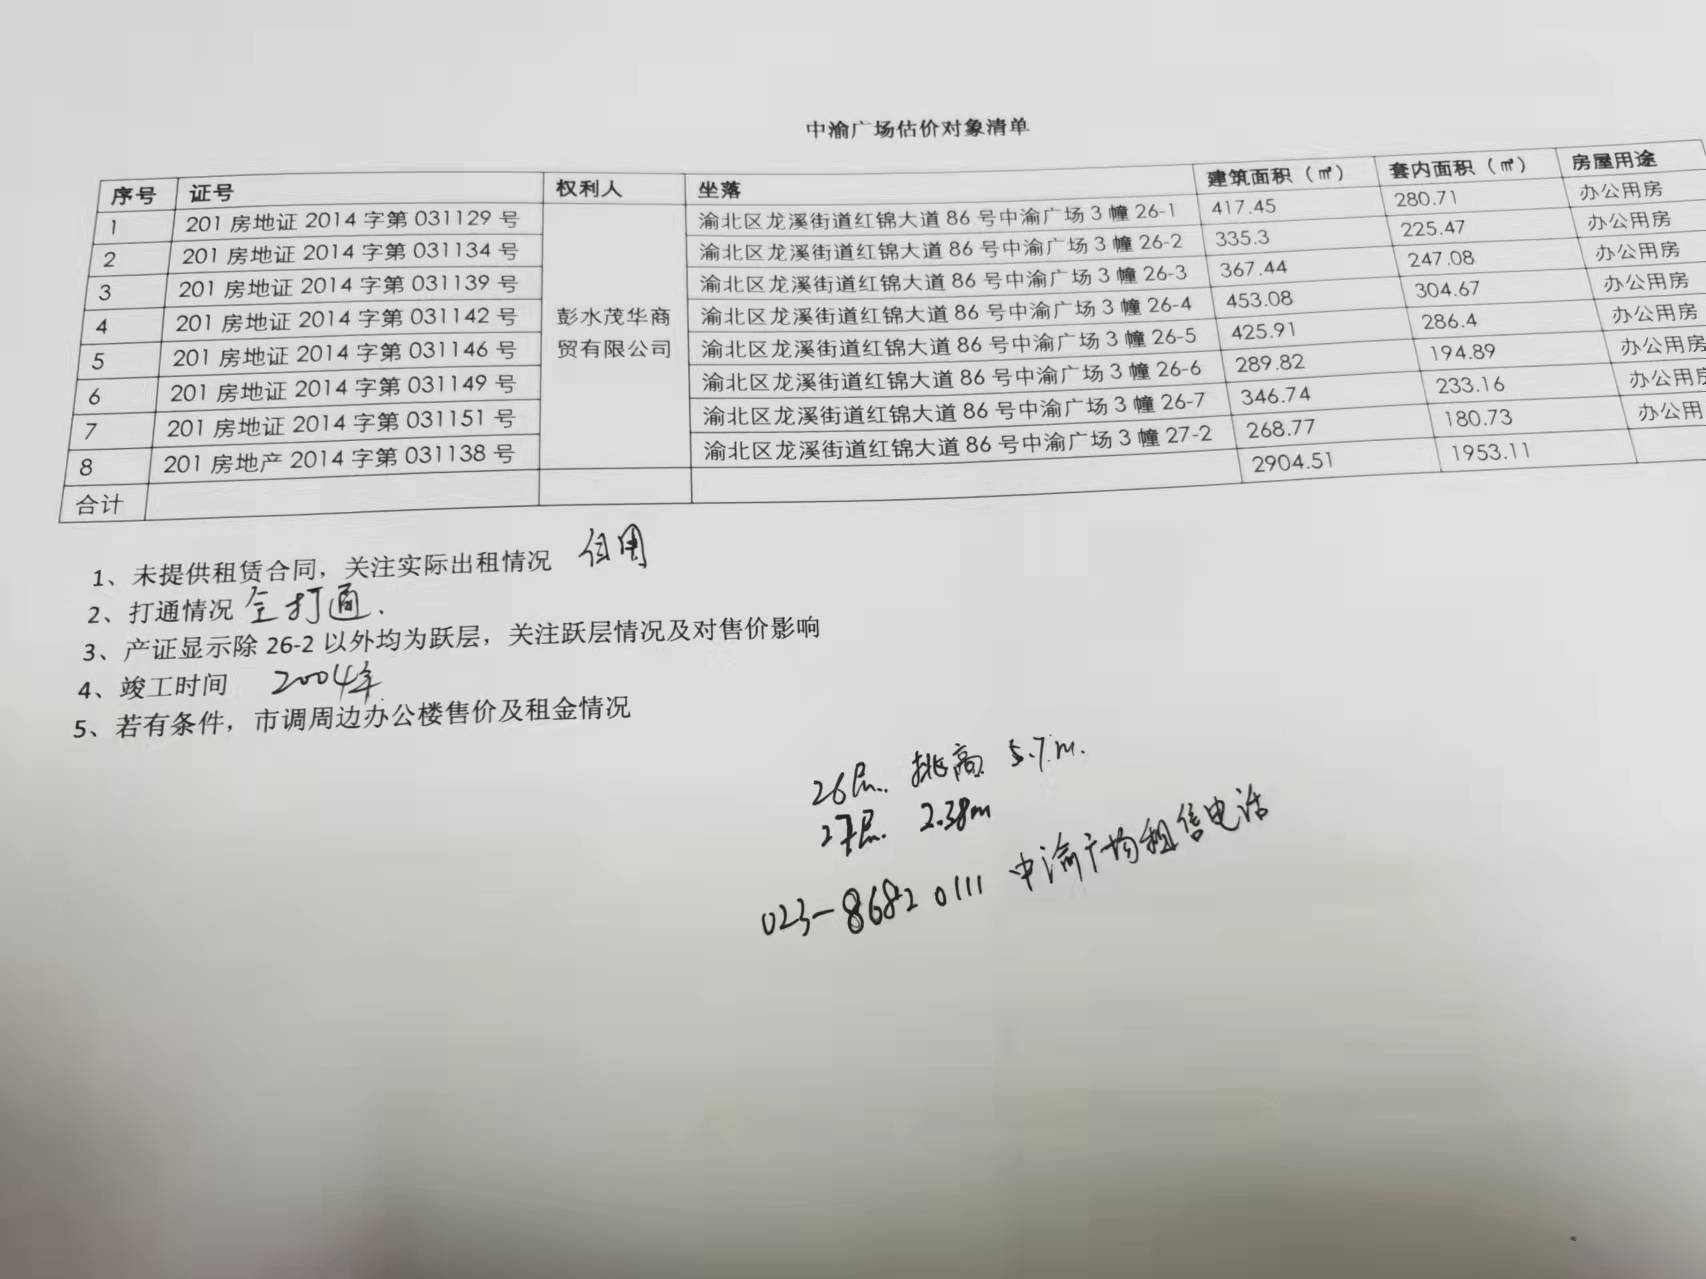 中渝广场估价对象清单
序号 证号 权利人 坐落 建筑面积（㎡） 套内面积（㎡） 房屋用途
1 201 房地证 2014 字第 031129 号 渝北区龙溪街道红锦大道 86 号中渝广场 3 幢 26-1 417.45 280.71 办公用房
2 201 房地证 2014 字第 031134 号 渝北区龙溪街道红锦大道 86 号中渝广场 3 幢 26-2 335.3 225.47 办公用房
3 201 房地证 2014 字第 031139 号 渝北区龙溪街道红锦大道 86 号中渝广场 3 幢 26-3 367.44 247.08 办公用房
4 201 房地证 2014 字第 031142 号 彭水茂华商 渝北区龙溪街道红锦大道 86 号中渝广场 3 幢 26-4 453.08 304.67 办公用房
5 201 房地证 2014 字第 031146 号 贸有限公司 渝北区龙溪街道红锦大道 86 号中渝广场 3 幢 26-5 425.91 286.4 办公用房
6 201 房地证 2014 字第 031149 号 渝北区龙溪街道红锦大道 86 号中渝广场 3 幢 26-6 289.82 194.89 办公用房
7 201 房地证 2014 字第 031151 号 渝北区龙溪街道红锦大道 86 号中渝广场 3 幢 26-7 346.74 233.16 办公用房
8 201 房地产 2014 字第 031138 号 渝北区龙溪街道红锦大道 86 号中渝广场 3 幢 27-2 268.77 180.73 办公用
合计 2904.51 1953.11
1、未提供租赁合同，关注实际出租情况 自用
2、打通情况 全打通.
3、产证显示除 26-2 以外均为跃层，关注跃层情况及对售价影响
4、竣工时间 2004年
5、若有条件，市调周边办公楼售价及租金情况
26层. 挑高 5.7m.
27层. 2.38m
023-8682 0111 中渝广场租售电话